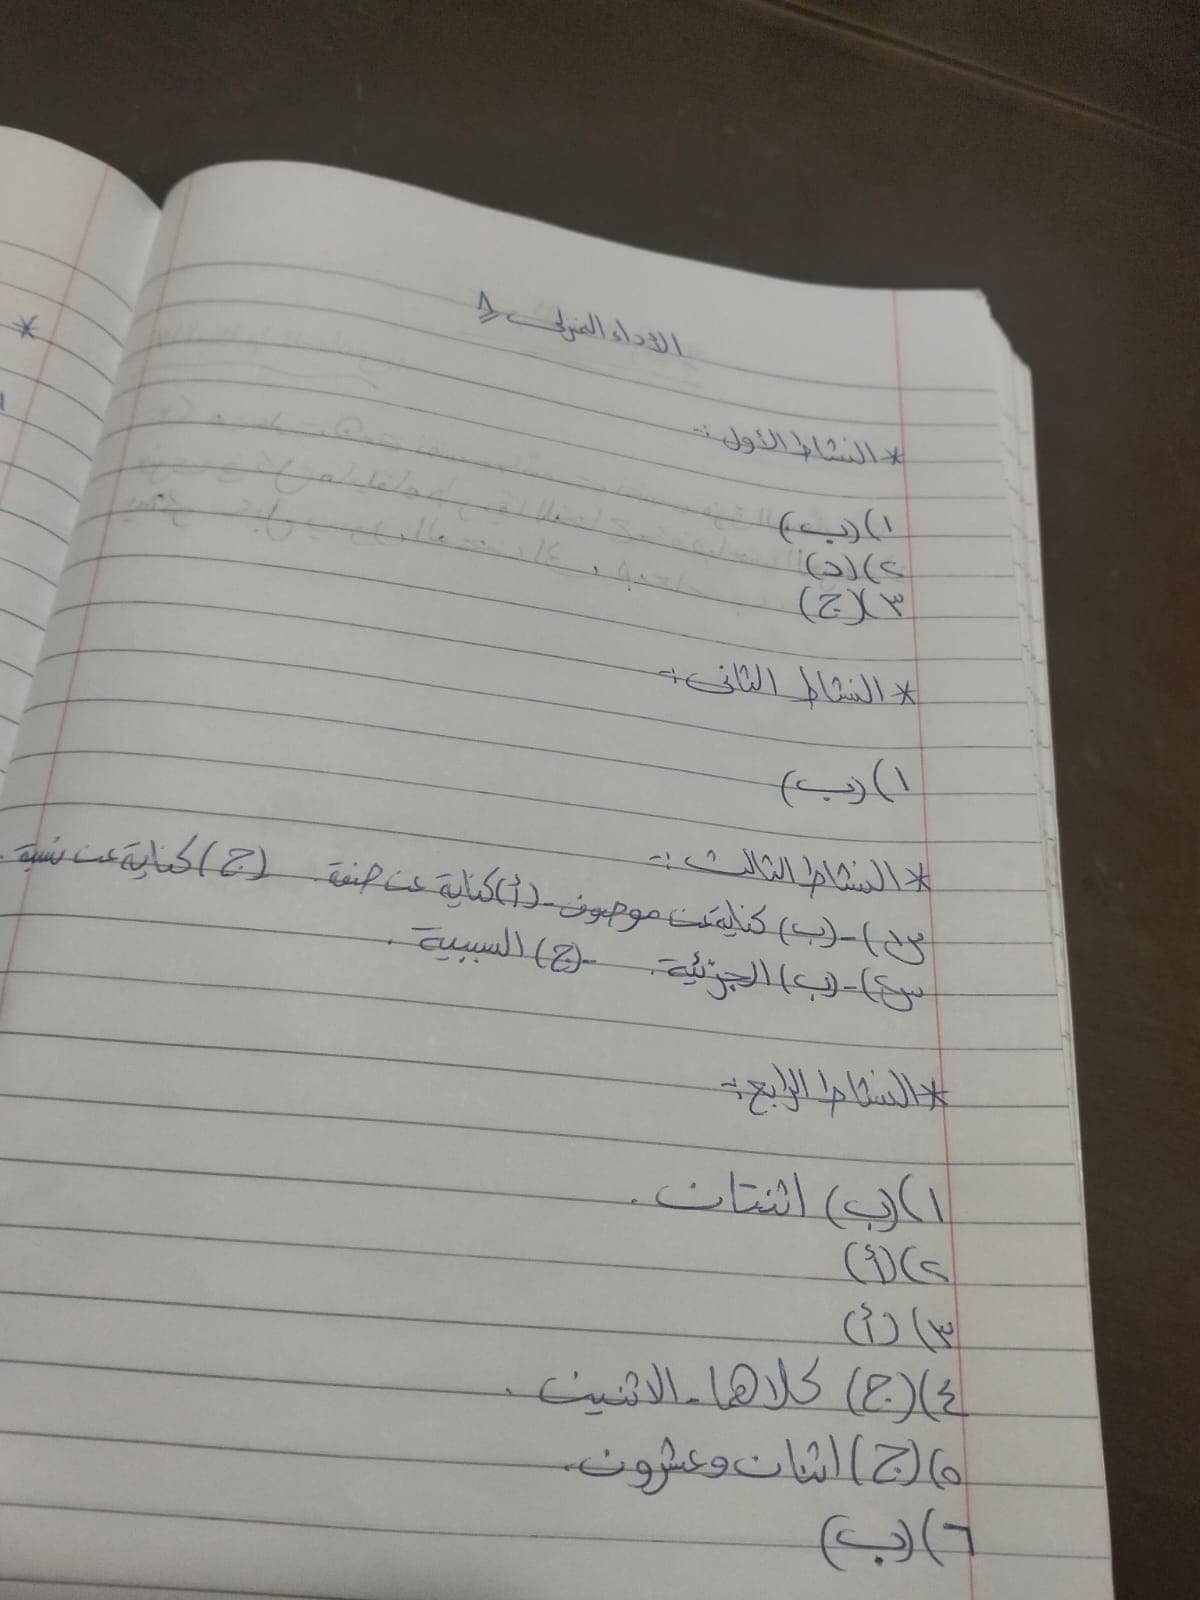 الأداء المنزلى ٨
* النشاط الأول :-
١) (ب)
٢) (د)
٣) (ج)
* النشاط الثانى :-
١) (ب)
* النشاط الثالث :-
س٣) - (ب) كناية عن موصوف - (أ) كناية عن صفة . (ج) كناية عن نسبة .
س٤) - (ب) الجزئية . - (ج) السببية .
* النشاط الرابع :-
١) (ب) اثنتان .
٢) (أ)
٣) (أ)
٤) (ج) كلاها - الاثنين .
٥) (ج) اثنان وعشرون .
٦) (ب)